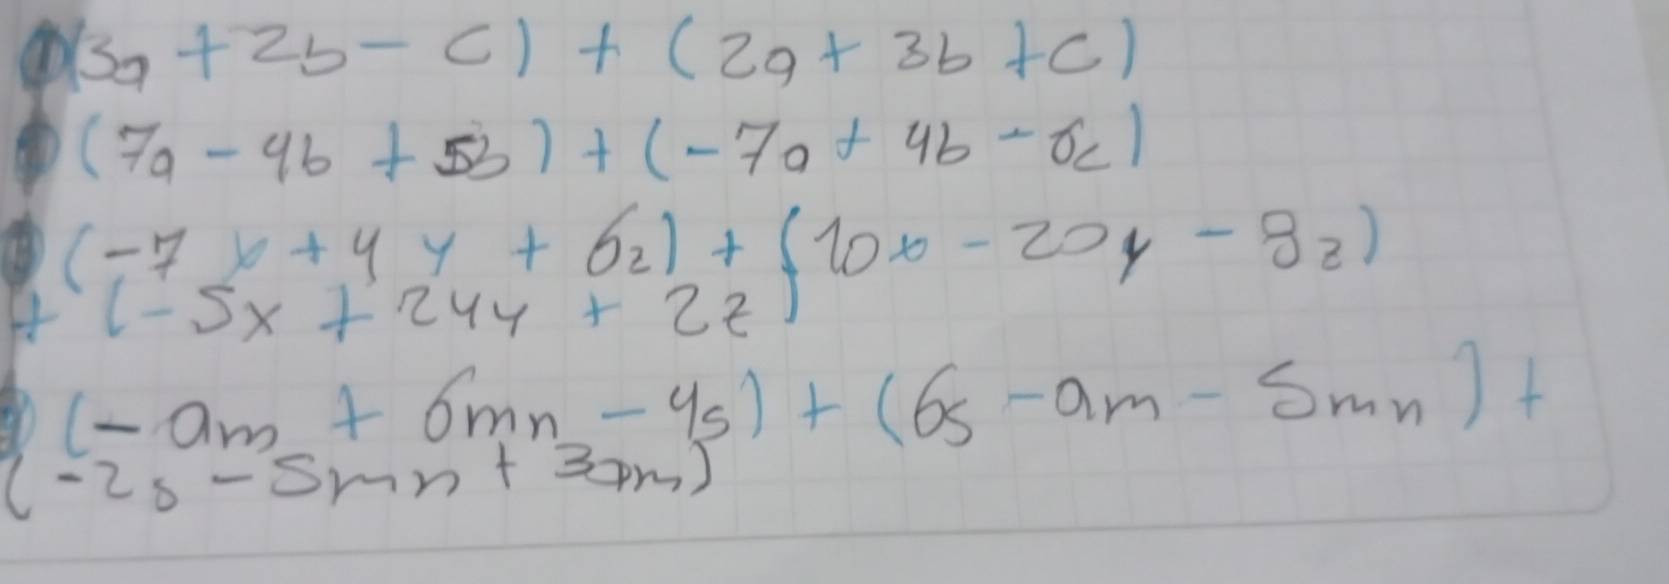 (3a + 2b - c) + (2a + 3b + c)
(7a - 4b + 5b) + (-7a + 4b - 6c)
(-7x + 4y + 6z) + (10x - 20y - 8z)
+ (-5x + 24y + 2z)
(-am + 6mn - 4s) + (6s - am - 5mn) +
(-2s - 5mn + 3am)